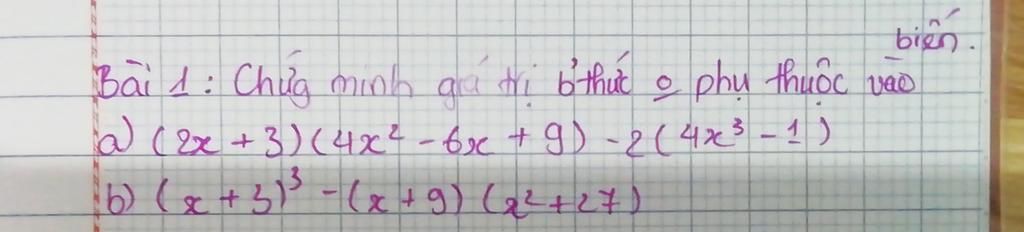 Bài 1: Chứg minh giá trị b'thức o phụ thuộc vào biến.
a) (2x + 3)(4x² - 6x + 9) - 2(4x³ - 1)
b) (x + 3)³ - (x + 9)(x² + 27)